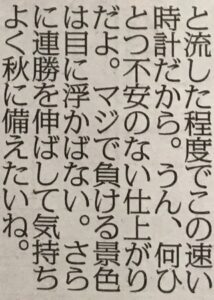 と流した程度でこの速い
時計だから。うん、何ひ
とつ不安のない仕上がり
だよ。マジで負ける景色
は目に浮かばない。さら
に連勝を伸ばして気持ち
よく秋に備えたいね。